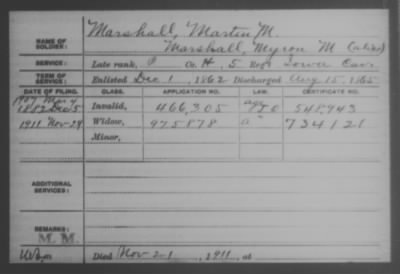 NAME OF SOLDIER: Marshall, Martin M.
Marshall, Myron M (alias)
SERVICE: Late rank, P Co. H, 5 Reg't Iowa Cav
TERM OF SERVICE: Enlisted Dec 1, 1862 Discharged Aug 15, 1865
DATE OF FILING. CLASS. APPLICATION NO. LAW. CERTIFICATE NO.
1907 May 4
1882 Dec 5 Invalid, 466,305 548,943
1911 Nov 29 Widow, 975878 734121
Minor,
ADDITIONAL SERVICES:
REMARKS:
M. M.
Died Nov 21, 1911, at